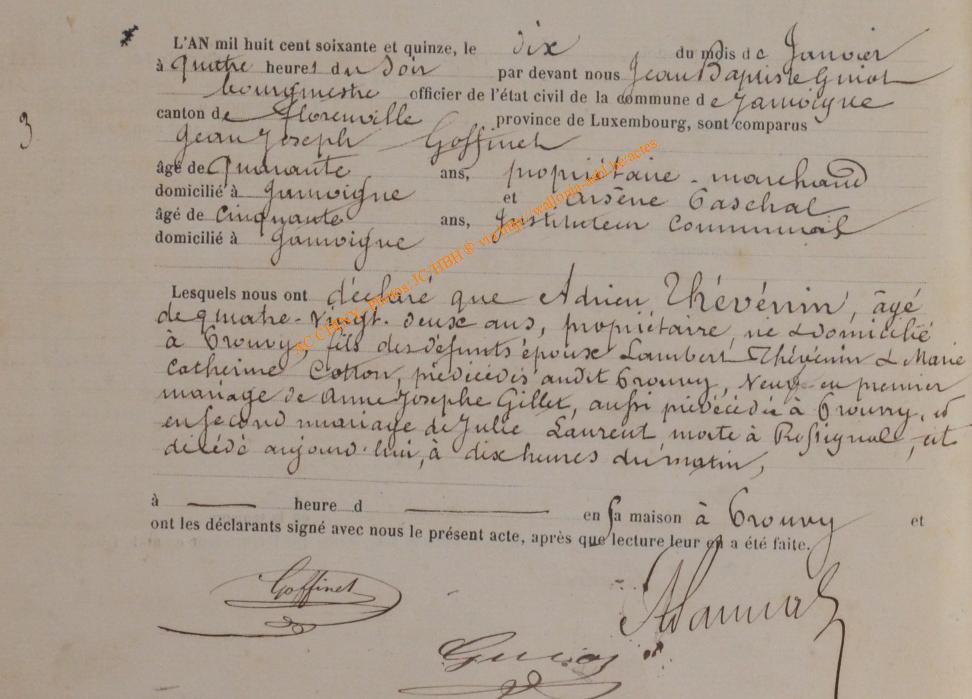 L'AN mil huit cent soixante et quinze, le dix du mois de Janvier
à quatre heures du Soir par devant nous Jean Baptiste Guiot
bourgmestre officier de l'état civil de la commune de Jamoigne
3
canton de Florenville province de Luxembourg, sont comparus
Jean Joseph Goffinet
âgé de Quarante ans, propriétaire - marchand
domicilié à Jamoigne et Arsène Paschal
âgé de Cinquante ans, Instituteur Communal
domicilié à Jamoigne
Lesquels nous ont déclaré que Adrien Thévénin, âgé
de quatre-vingt-deux ans, propriétaire, né & domicilié
à Prouvy, fils des défunts époux Lambert Thévénin & Marie
Catherine Cotton, prédécédés audit Prouvy, veuf en premier
mariage de Anne Josephe Gillet, aussi prédécédée à Prouvy, et
en second mariage de Julie Laurent morte à Rossignol, est
décédé aujourd'hui, à dix heures du matin,
à heure d en sa maison à Prouvy et
ont les déclarants signé avec nous le présent acte, après que lecture leur en a été faite.
Goffinet
Guiot